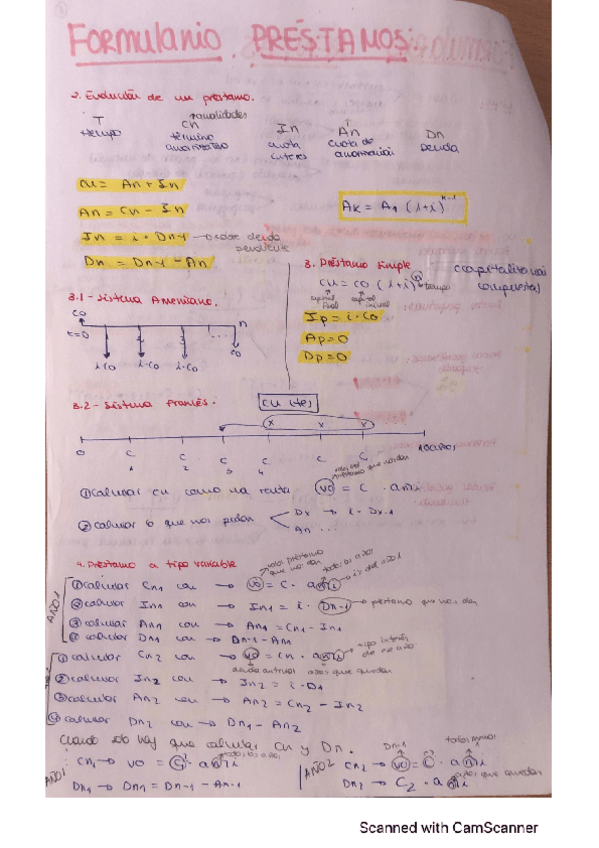 Formulario PRÉSTAMOS.
2. Evolución de un préstamo.
T Cn In An Dn
anualidades
tiempo término amortizativo cuota interés cuota de amortización Deuda
Cn = An + In
An = Cn - In
Ak = A1 (1+i)^k-1
In = i · Dn-1 → sobre deuda pendiente
Dn = Dn-1 - An
3.1- Sistema Americano.
Co n
t=0
i·Co i·Co i·Co Co
3. Préstamo simple (capitalización compuesta)
Cn = Co (1+i)^n → tiempo
capital final capital inicial
Ip = i·Co
Ap=0
Dp=0
3.2- Sistema francés. Cn (te)
x x x
0 C C C C C C 10 años
1 2 3 4
① calcular Cn como una renta V0 = C · a n i
② calcular lo que nos pidan Dx → i · Dx-1
An ...
4. Préstamo a tipo variable
AÑO 1
① calcular Cn1 con → V0 = C · a n i
② calcular In1 con → In1 = i · Dn-1 → préstamo que nos dan
③ calcular An1 con → An1 = Cn1 - In1
④ calcular Dn1 con → Dn-1 - An1
① calcular Cn2 con → V0 = Cn · a n i → tipo interés de ese año
deuda anterior años que quedan
② calcular In2 con → In2 = i · D1
③ calcular An2 con → An2 = Cn2 - In2
④ calcular Dn2 con → Dn1 - An2
Cuando solo hay que calcular Cn y Dn.
AÑO 1
Cn1 → V0 = C · a n i
Dn1 → Dn1 = Dn-1 - An-1
AÑO 2
Dn-1
Cn2 → V0 = C · a n i
Dn2 → C2 · a n i años que quedan
Scanned with CamScanner